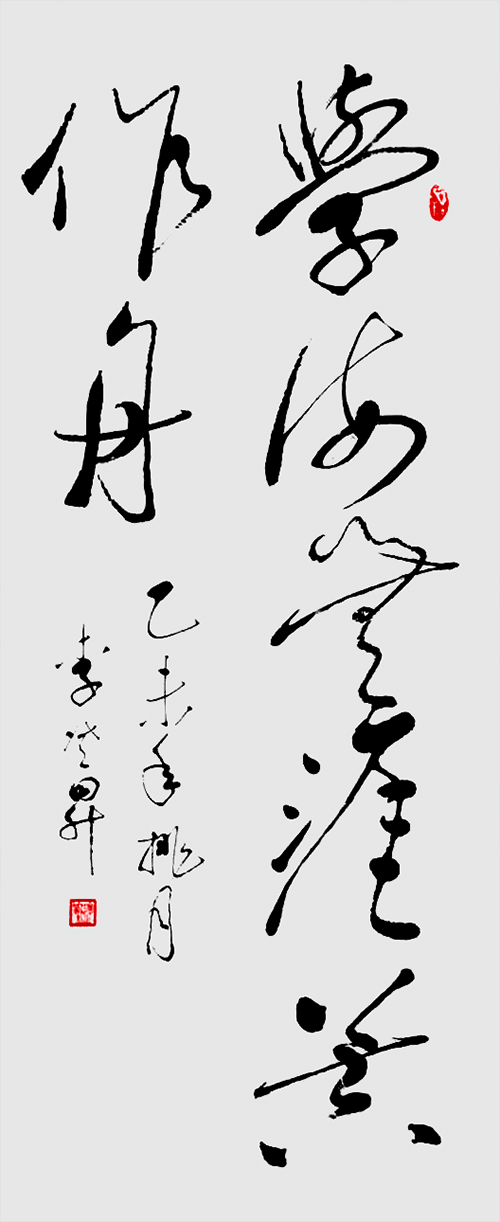 學海無涯共
作舟
乙未年桃月
李登昇